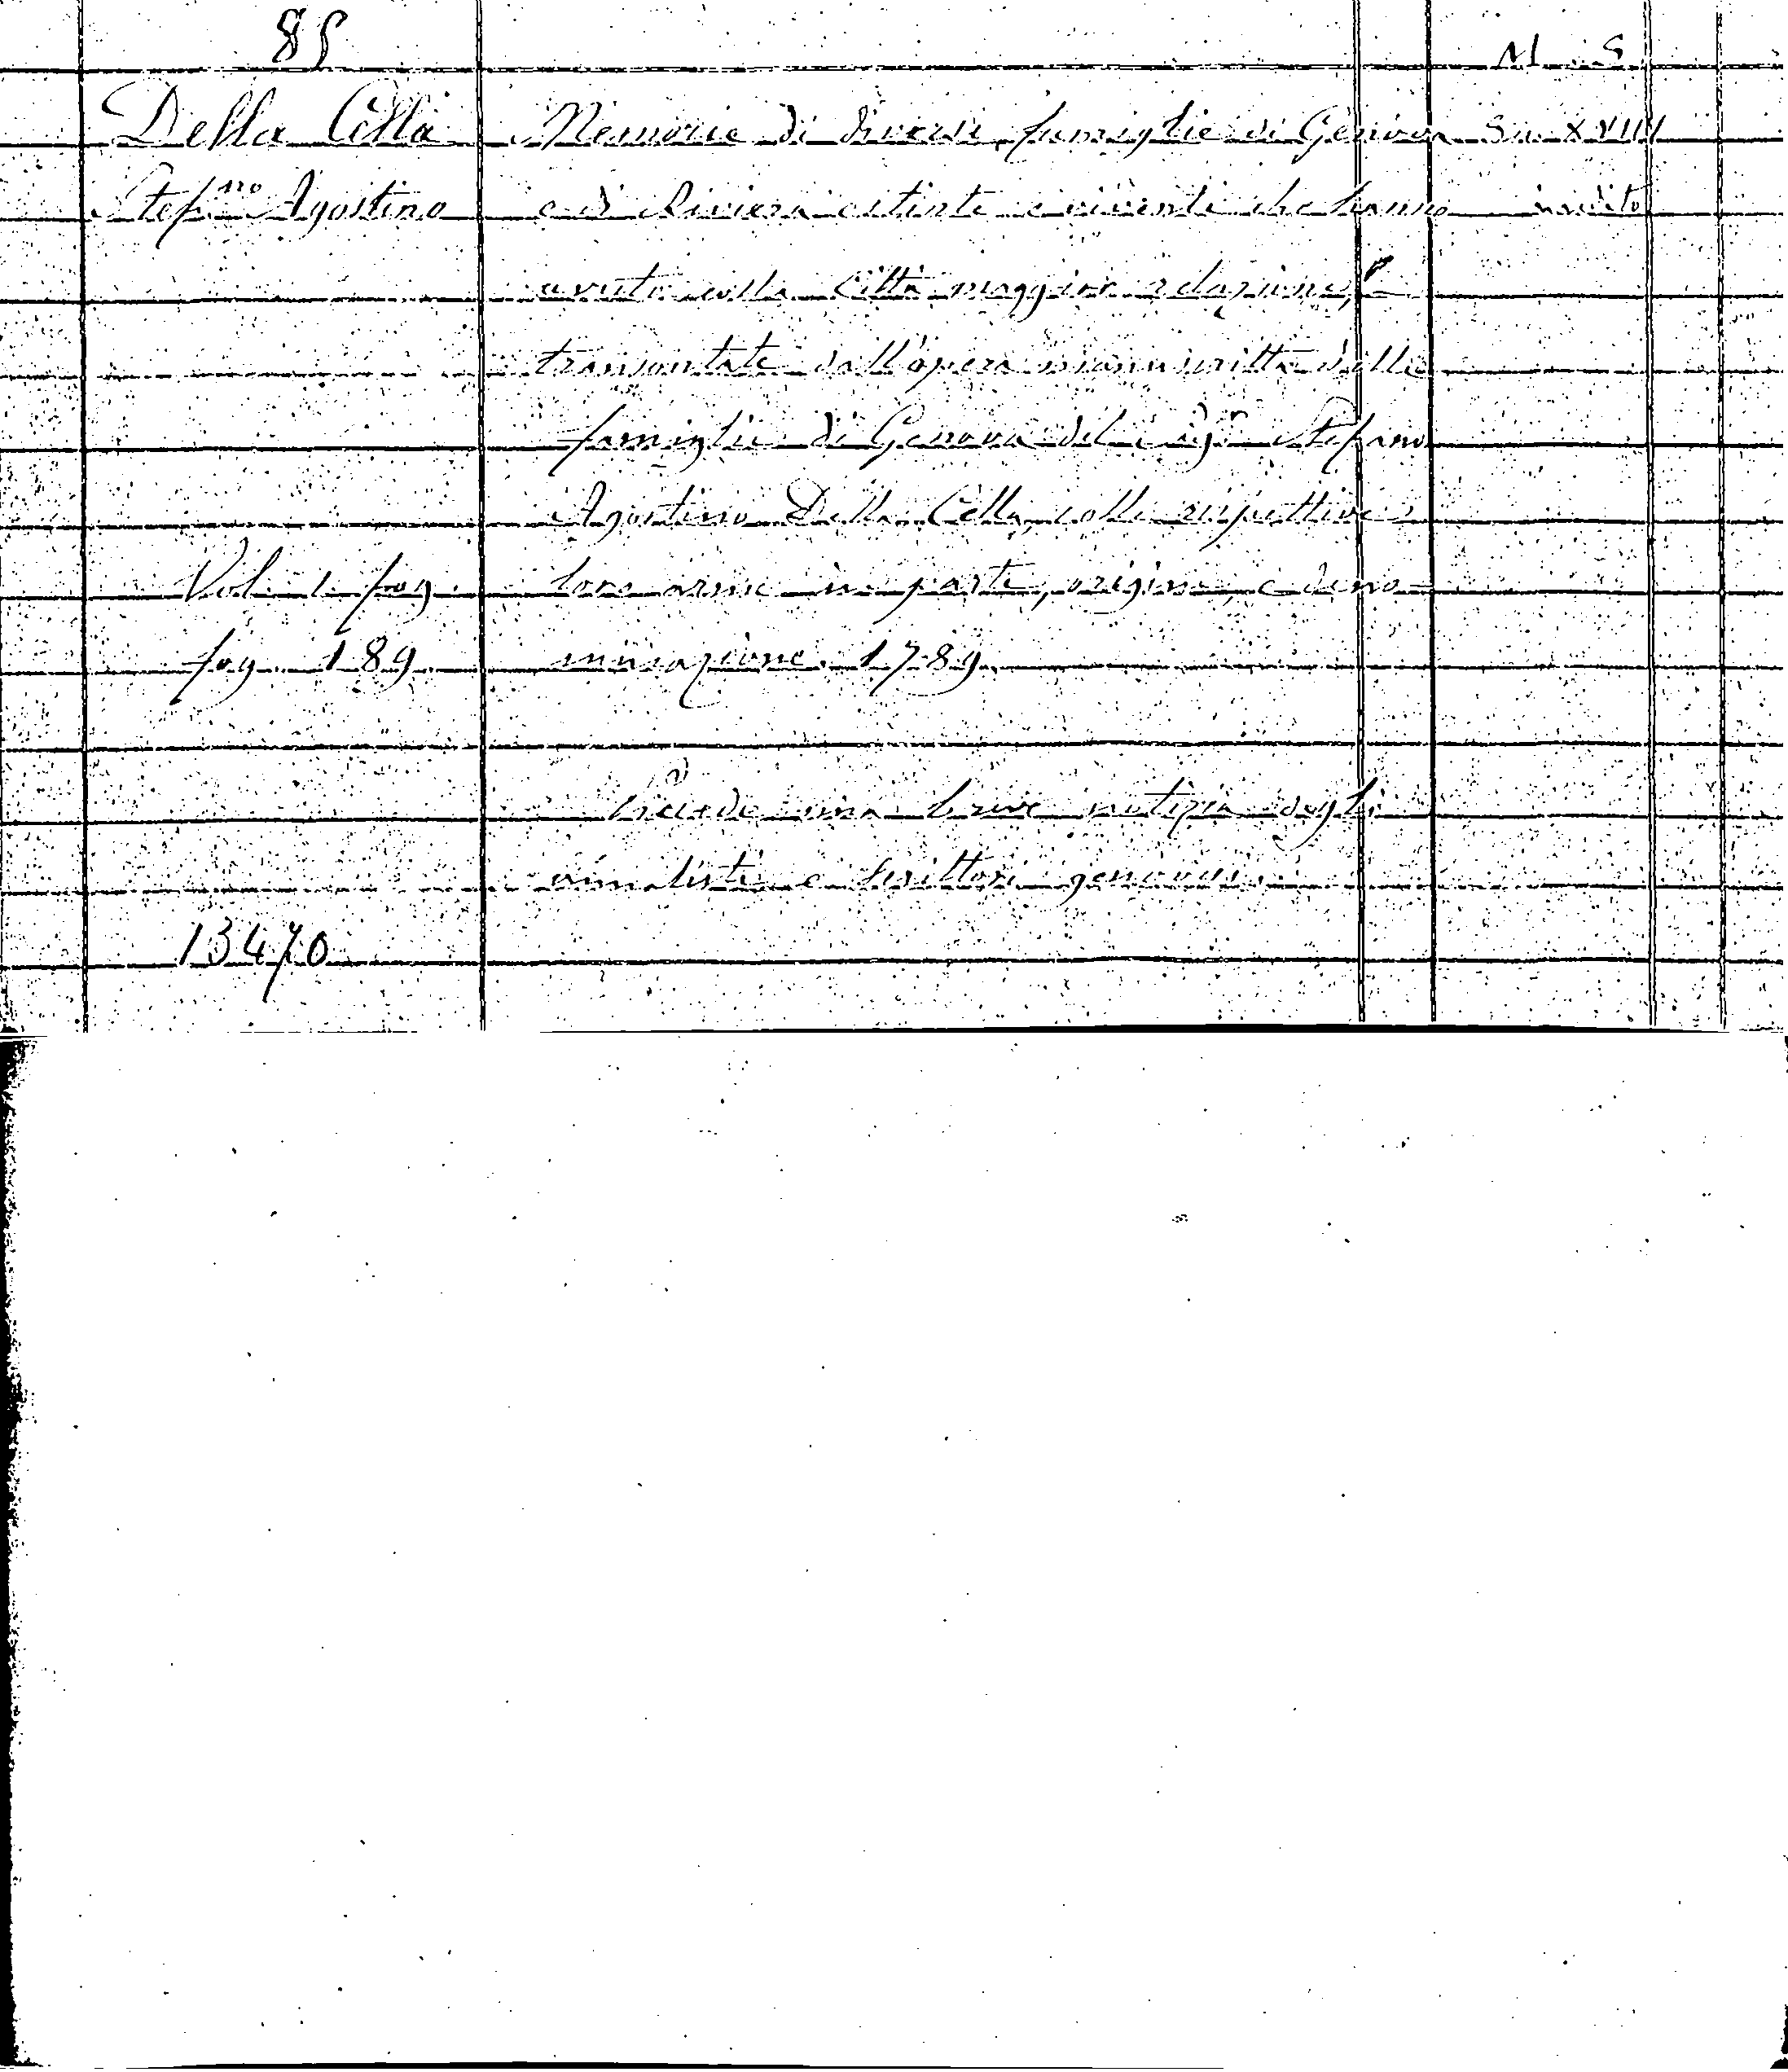 85
M. S.
Della Cella Memorie di diverse famiglie di Genova Sec. XVIII
Stef.no Agostino e di Riviera estinte e viventi che hanno inedito
avuto colla Città maggior relazione,
transuntate dall'opera manuscritta delle
famiglie di Genova del Stefano
Agostino Della Cella, colle rispettive
Vol. 1. fog. loro arme in parte, origine, e deno-
fog. 189. minazione. 1789.
una breve notizia degli
annalisti e scrittori genovesi.
13470